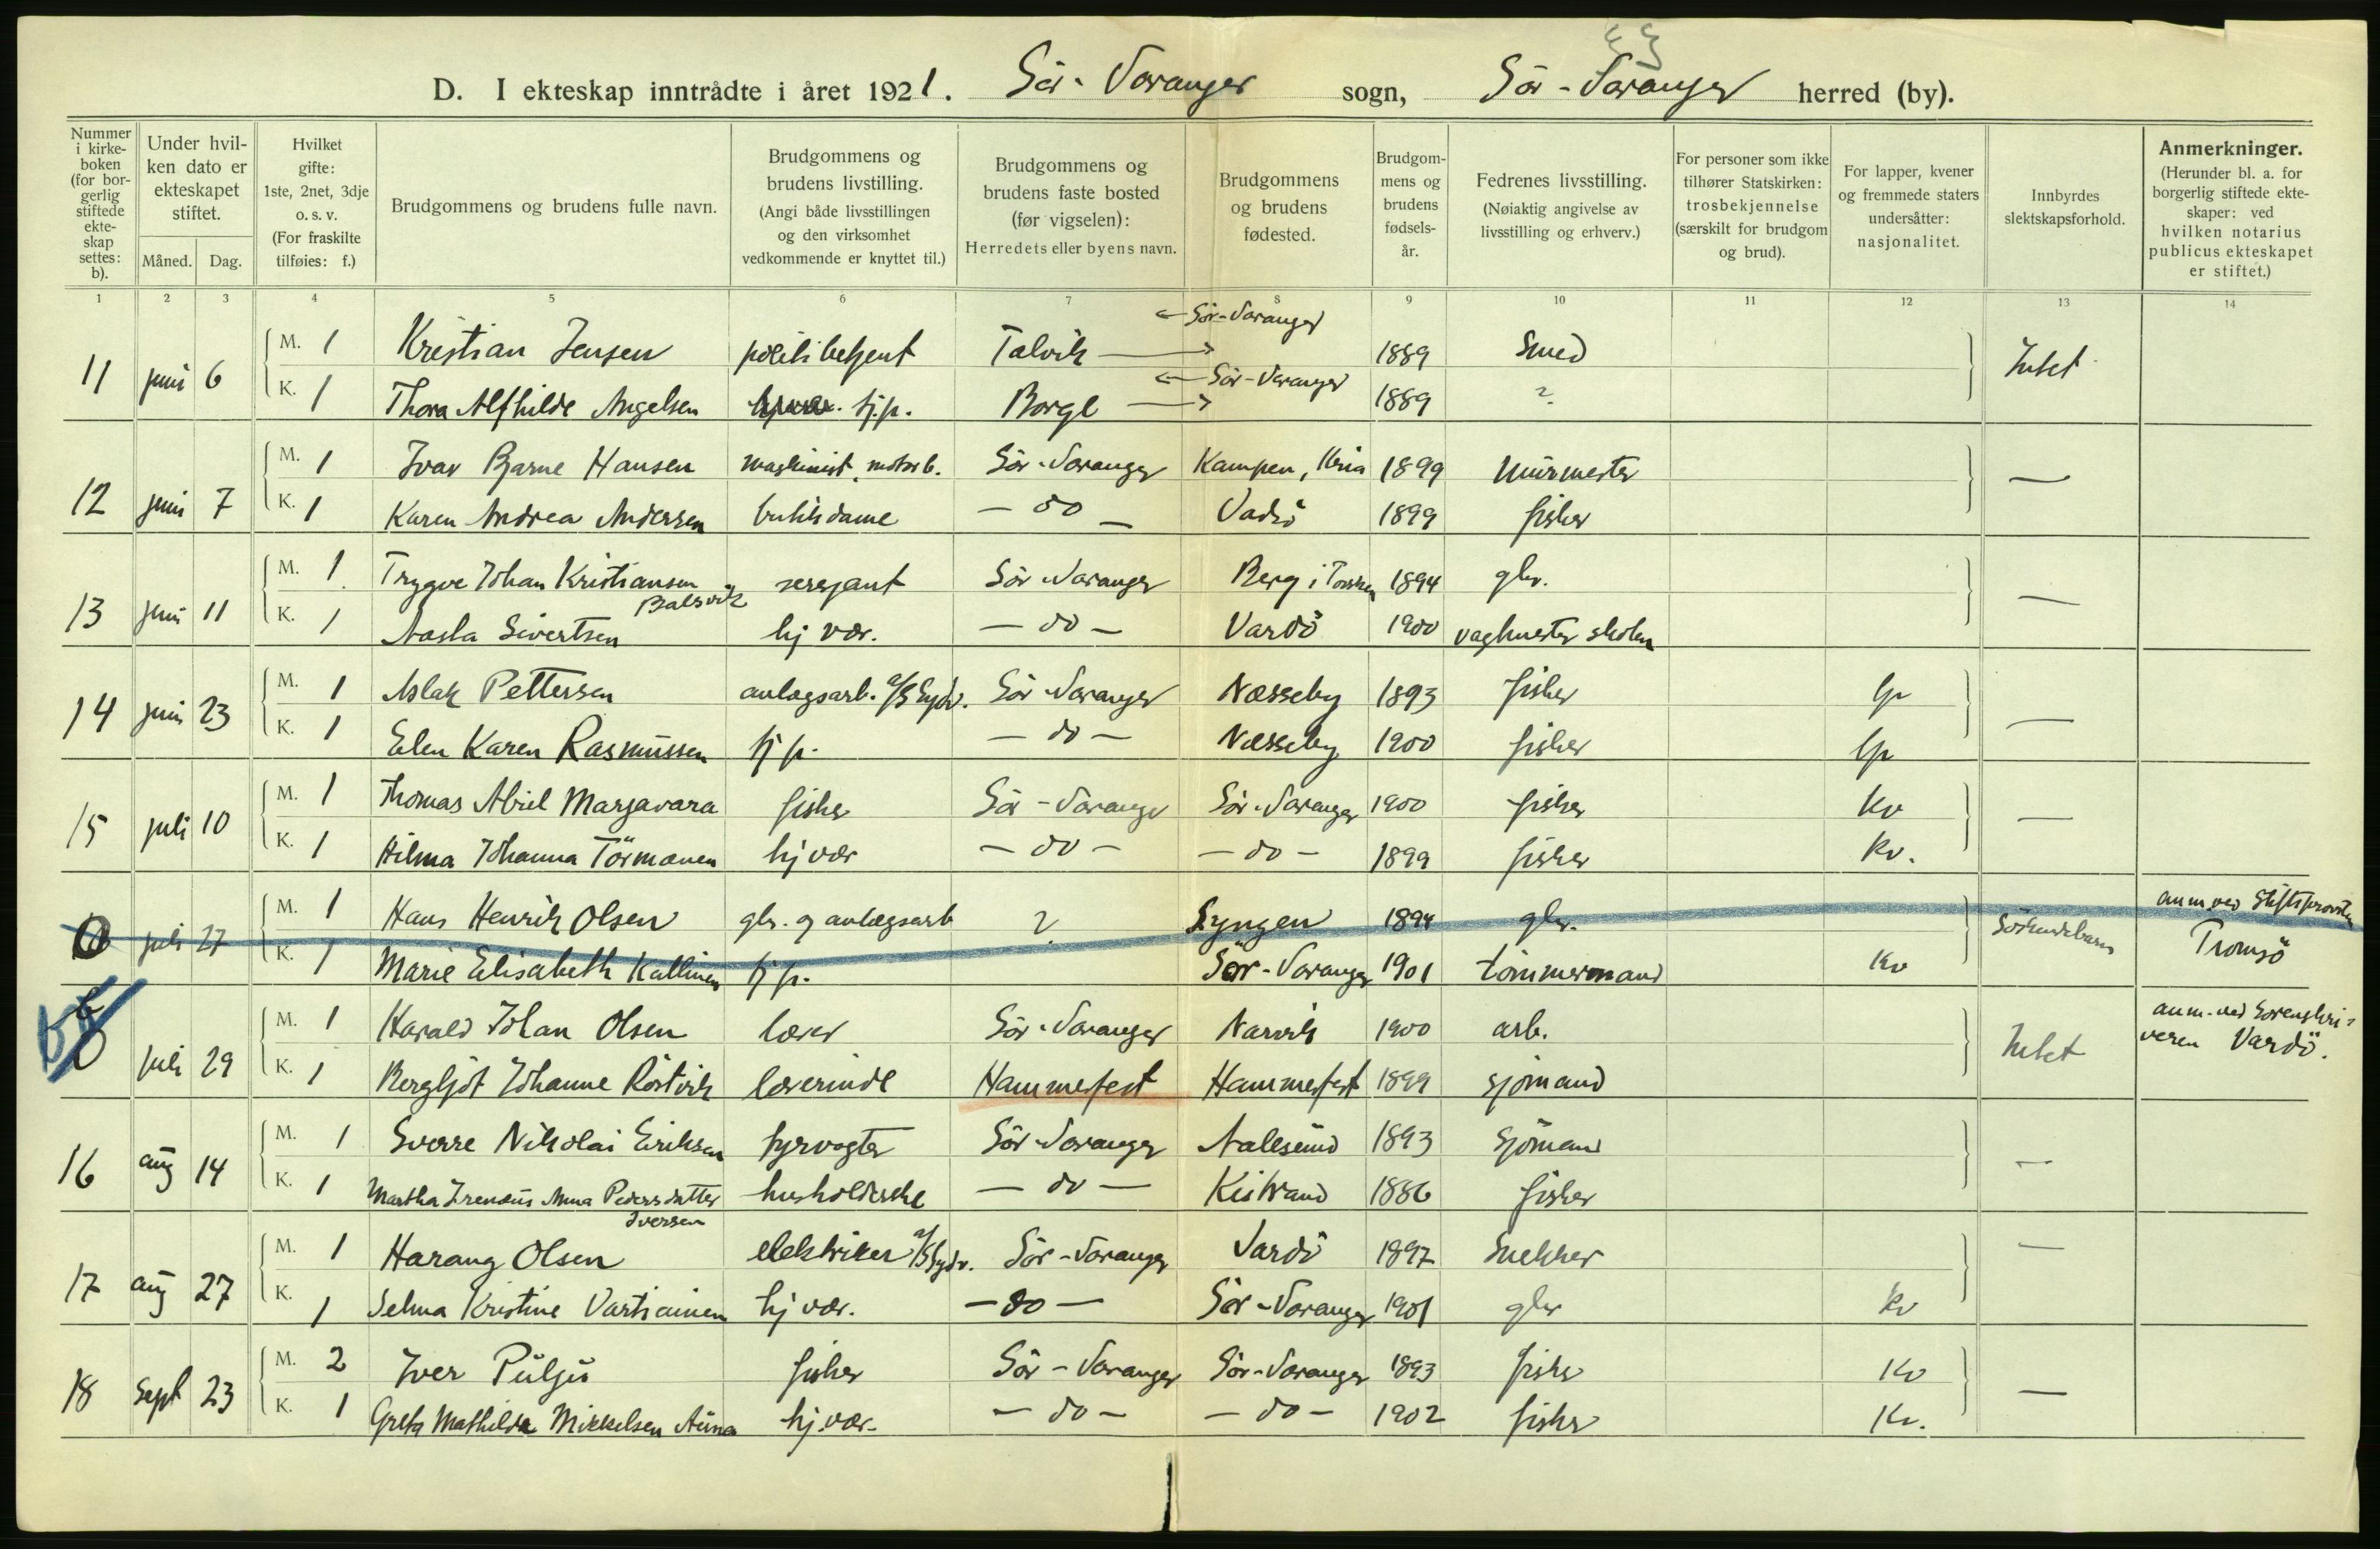 D. I ekteskap inntrådte i året 1921. Sör-Varanger sogn, Sör-Varanger herred (by).
Nummer i kirke-boken (for bor-gerlig stiftede ekte-skap settes: b).
Under hvil-ken dato er ekteskapet stiftet.
Måned. Dag.
Hvilket gifte: 1ste, 2net, 3dje o. s. v. (For fraskilte tilføies: f.)
Brudgommens og brudens fulle navn.
Brudgommens og brudens livstilling. (Angi både livsstillingen og den virksomhet vedkommende er knyttet til.)
Brudgommens og brudens faste bosted (før vigselen): Herredets eller byens navn.
Brudgommens og brudens fødested.
Brudgom-mens og brudens fødsels-år.
Fedrenes livsstilling. (Nøiaktig angivelse av livsstilling og erhverv.)
For personer som ikke tilhører Statskirken: trosbekjennelse (særskilt for brudgom og brud).
For lapper, kvener og fremmede staters undersåtter: nasjonalitet.
Innbyrdes slektskapsforhold.
Anmerkninger. (Herunder bl. a. for borgerlig stiftede ekte-skaper: ved hvilken notarius publicus ekteskapet er stiftet.)
1 2 3 4 5 6 7 8 9 10 11 12 13 14
← Sör-Varanger
11 juni 6 M. 1 Kristian Jensen politibetjent Talvik → 1889 Smed Intet
← Sör-Varanger
K. 1 Thora Alfhilde Angelsen hj.p. Borge → 1889 ?
12 juni 7 M. 1 Ivar Bjarne Hansen maskinist, motorb. Sör-Varanger Kampen, Kria 1899 Murmester —
K. 1 Karen Andrea Andersen butikdame — do — Vadsö 1899 fisker
13 juni 11 M. 1 Trygve Johan Kristiansen Balsvik sersjant Sör-Varanger Berg i Torsken 1894 gbr. —
K. 1 Aasta Sivertsen hj vær. — do — Vardö 1900 vagtmester skolen
14 juni 23 M. 1 Aslak Pettersen anlægsarb. a/s Sydv. Sör-Varanger Næsseby 1893 fisker lp —
K. 1 Elen Karen Rasmussen hj p. — do — Næsseby 1900 fisker lp
15 juli 10 M. 1 Thomas Abiel Margavara fisker Sör-Varanger Sör-Varanger 1900 fisker kv —
K. 1 Hilma Johanna Törmänen hj vær — do — — do — 1899 fisker kv.
juli 27 M. 1 Hans Henrik Olsen gbr. og anlægsarb ? Lyngen 1894 gbr. Söskendebarn anm. ved Stiftsprovsten Tromsö
K. 1 Marie Elisabeth Kallinen hj p. Sör-Varanger 1901 tömmermand kv
b juli 29 M. 1 Harald Johan Olsen lærer Sör-Varanger Narvik 1900 arb. Intet anm. ved Sorenskri-veren Vardö.
K. 1 Bergljot Johanne Röstvik lærerinde Hammerfest Hammerfest 1899 sjömand
16 aug 14 M. 1 Sverre Nikolai Eriksen fyrvogter Sör-Varanger Aalesund 1893 sjömand —
K. 1 Martha Irenæus Anna Pedersdatter Iversen husholderske — do — Kistrand 1886 fisker
17 aug 27 M. 1 Harang Olsen elektriker a/s Sydv. Sör-Varanger Vardö 1897 Snekker —
K. 1 Selma Kristine Vartiainen hj vær. — do — Sör-Varanger 1901 gbr kv
18 Sept 23 M. 2 Iver Pulju fisker Sör-Varanger Sör-Varanger 1893 fisker kv —
K. 1 Greta Mathilda Mikkelsen Auna hj.vær. — do — — do — 1902 fisker kv.